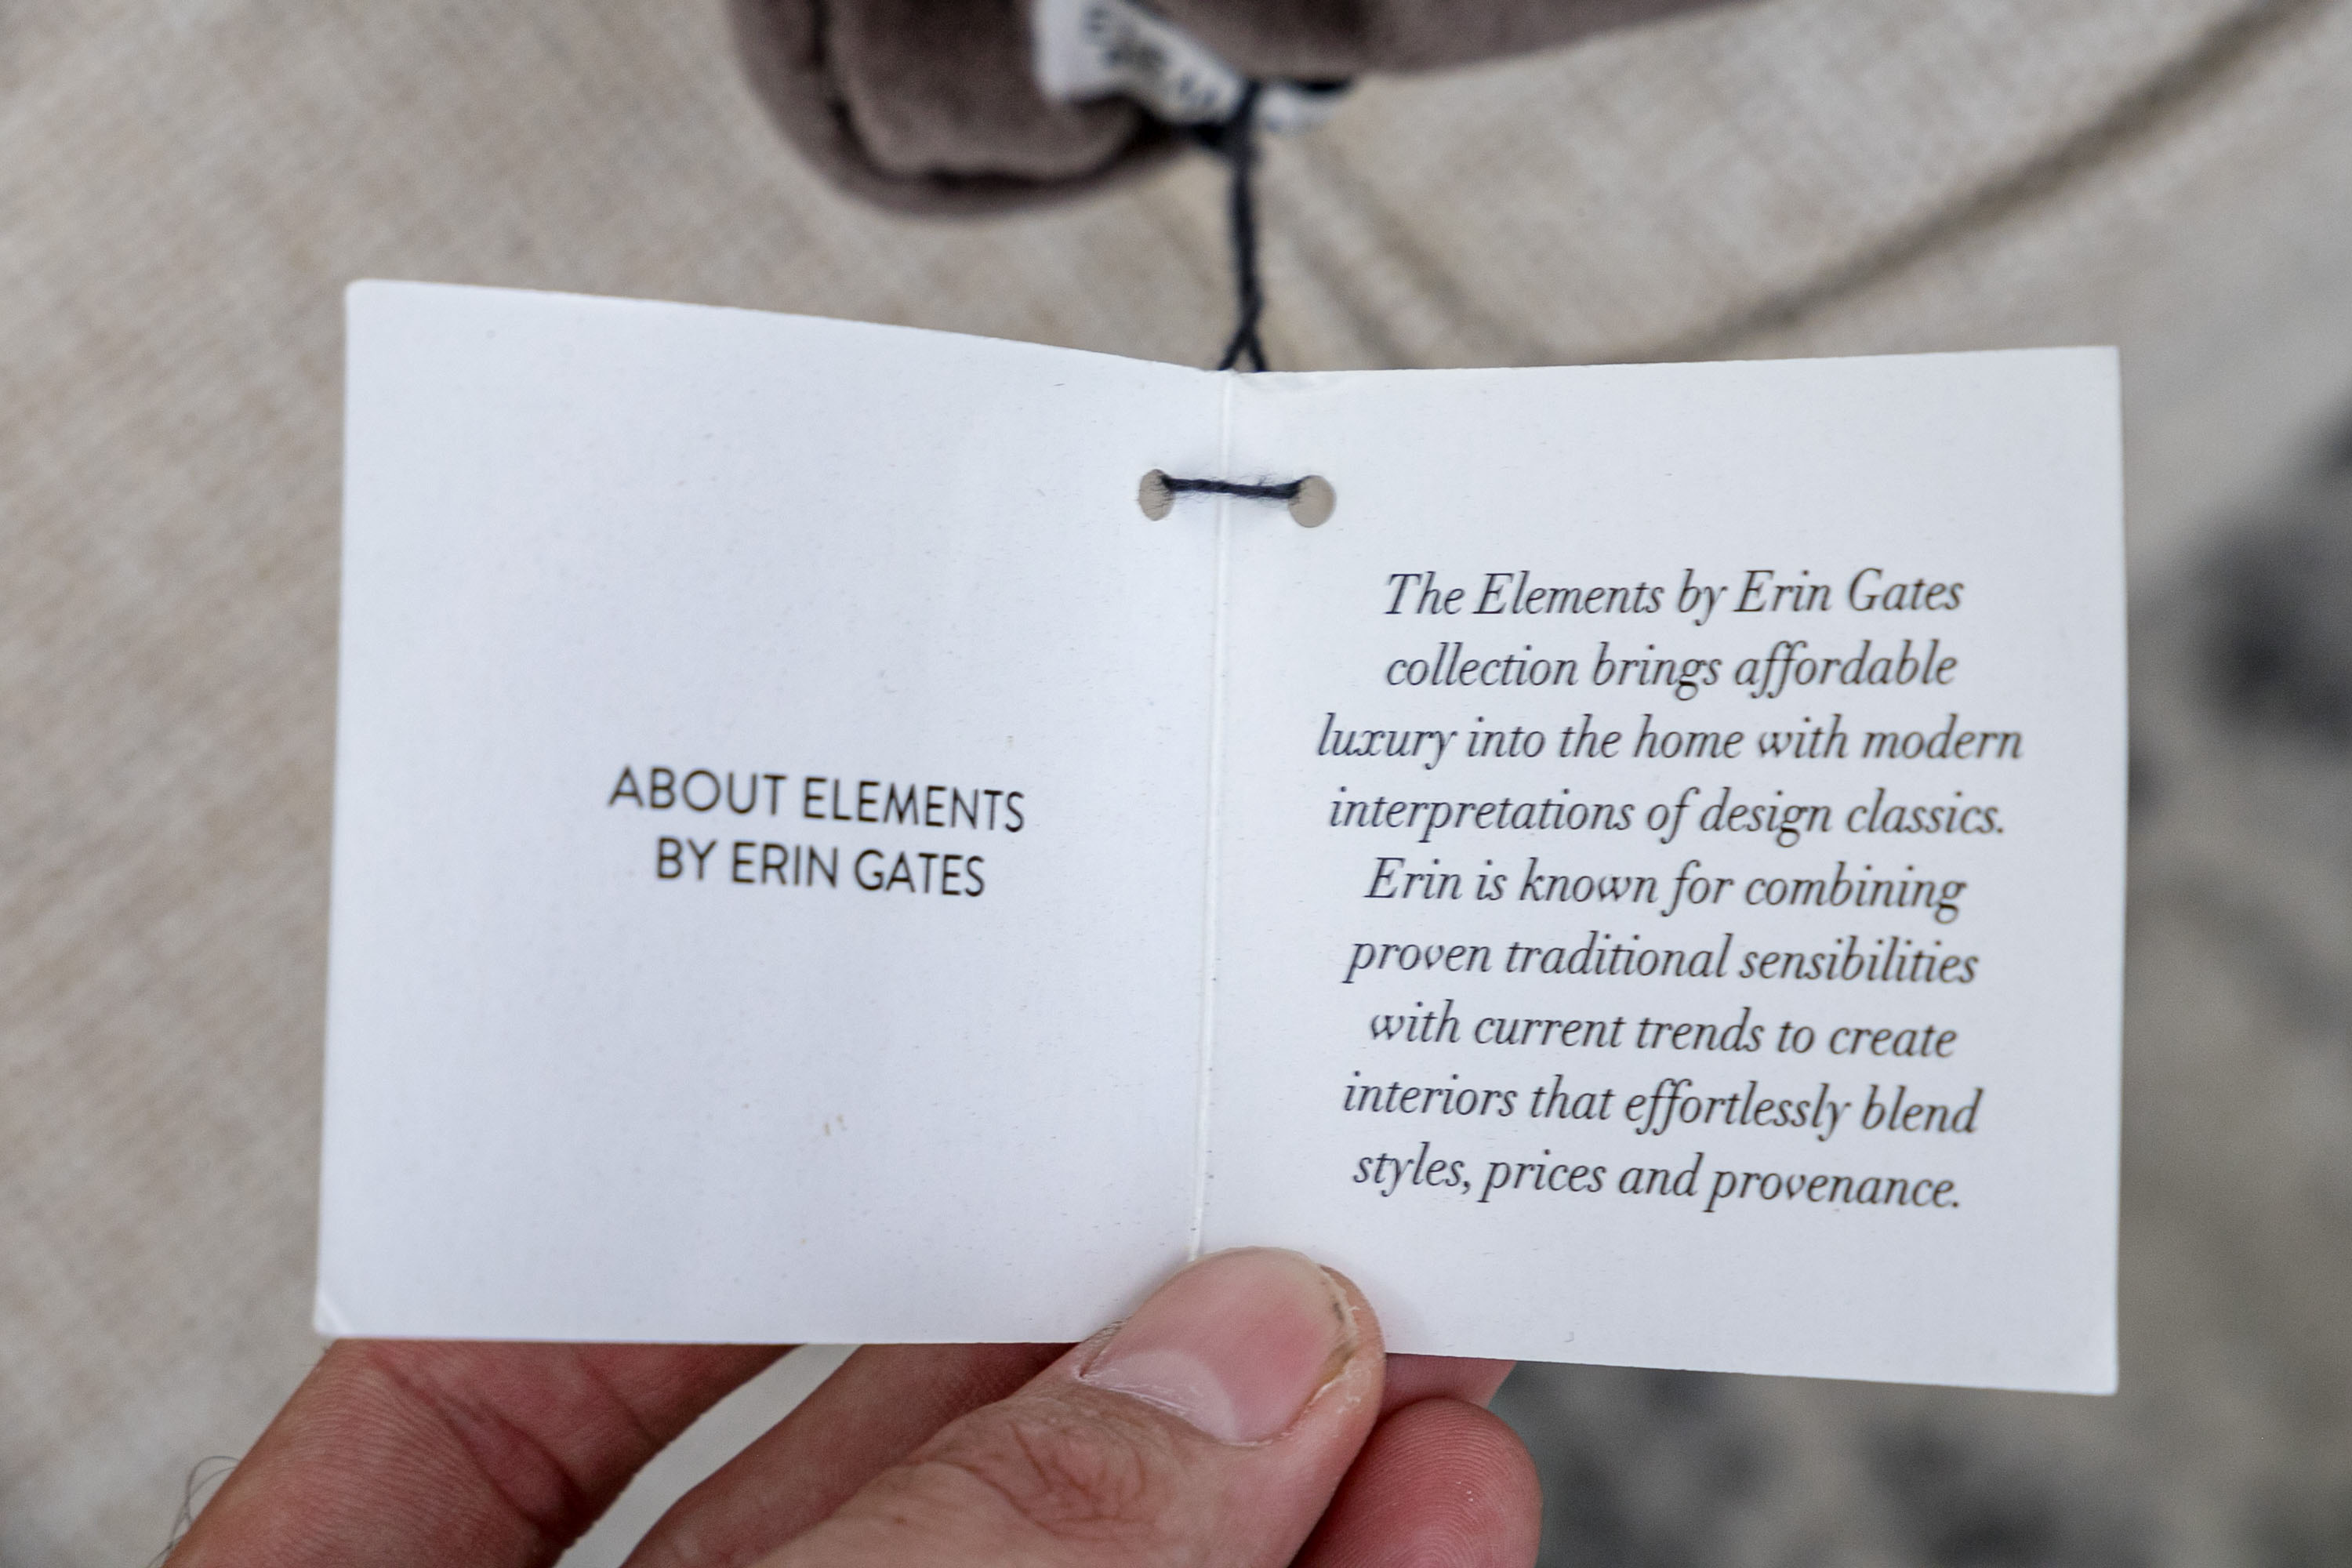 ABOUT ELEMENTS
BY ERIN GATES
The Elements by Erin Gates
collection brings affordable
luxury into the home with modern
interpretations of design classics.
Erin is known for combining
proven traditional sensibilities
with current trends to create
interiors that effortlessly blend
styles, prices and provenance.